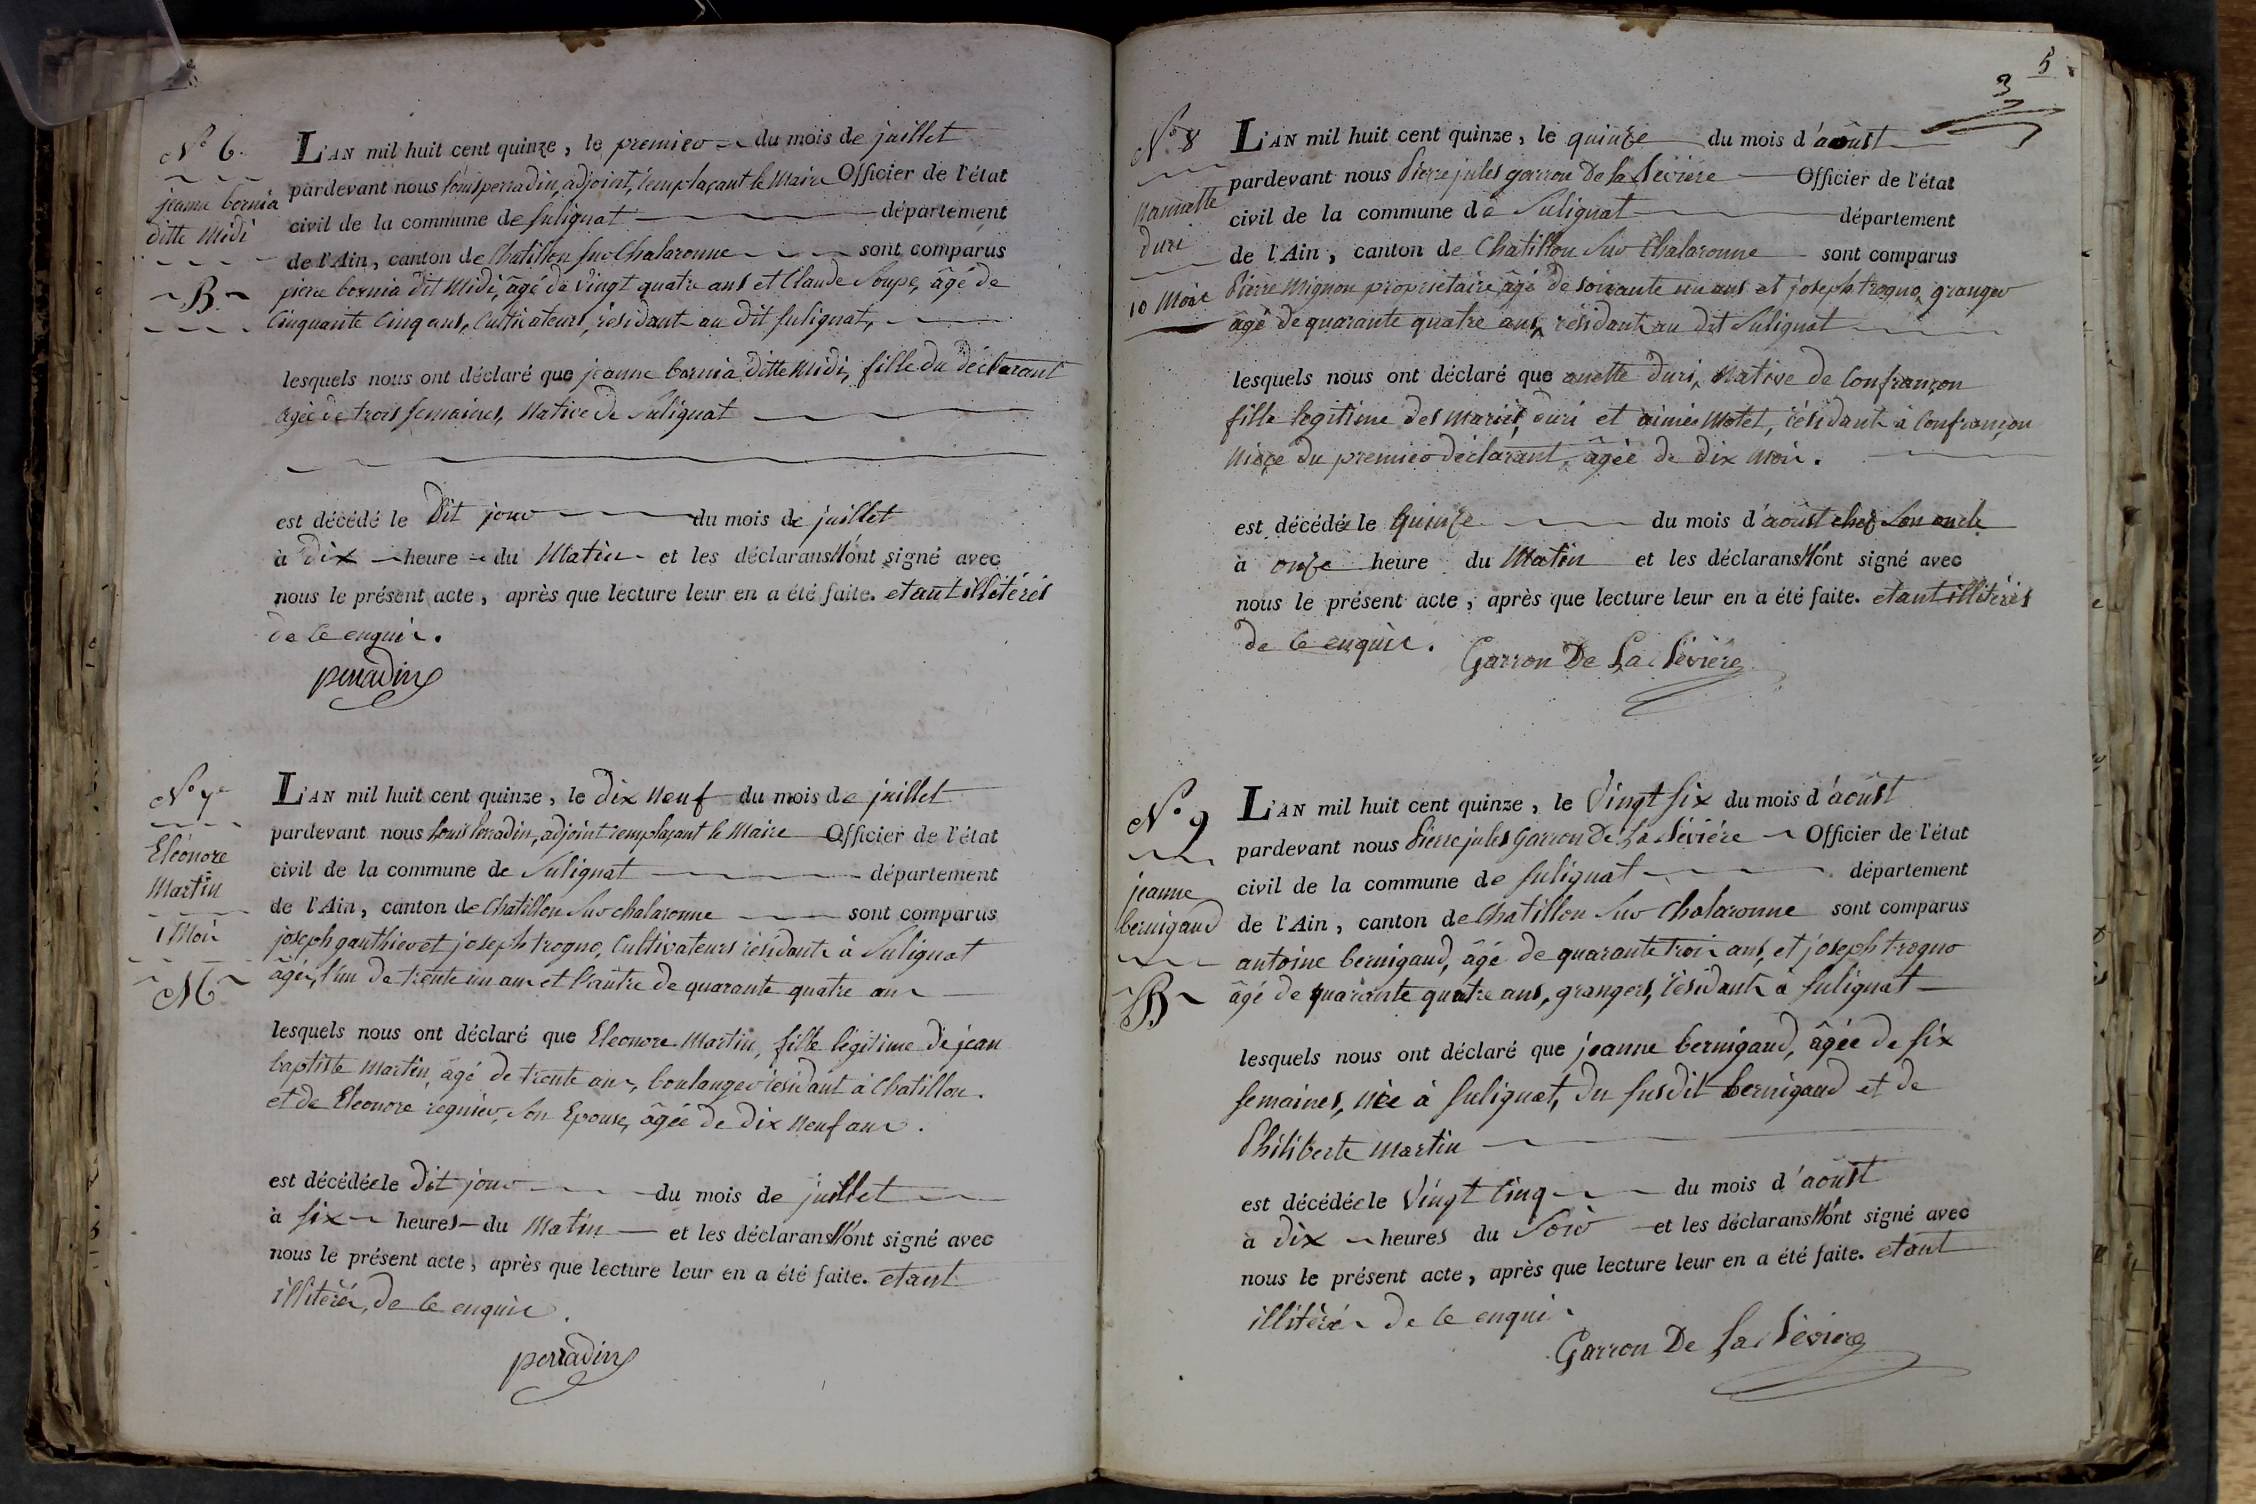 N° 6.
jeanne bornia
ditte Midi
B
L'AN mil huit cent quinze, le premier du mois de juillet
pardevant nous Louis perradin, adjoint, remplaçant le Maire Officier de l'état
civil de la commune de Sulignat département
de l'Ain, canton de Chatillon sur Chalaronne sont comparus
pierre bornia dit Midi, âgé de vingt quatre ans et Claude Soupe, âgé de
Cinquante Cinq ans, Cultivateurs, résidant au dit Sulignat,
lesquels nous ont déclaré que jeanne bornia ditte Midi, fille du déclarant
agée de trois semaines, Native de Sulignat
est décédé le Dit jour du mois de juillet
à Dix heure du Matin et les déclarans N'ont signé avec
nous le présent acte, après que lecture leur en a été faite. etant illitérés
de ce enquis.
perradin
N° 7
Eléonore
Martin
1 Mois
M
L'AN mil huit cent quinze, le Dix Neuf du mois de juillet
pardevant nous Louis Perradin, adjoint remplaçant le Maire Officier de l'état
civil de la commune de Sulignat département
de l'Ain, canton de Chatillon sur chalaronne sont comparus
joseph gauthier et joseph trogno, Cultivateurs résidants à Sulignat
âgés, l'un de trente un ans et l'autre de quarante quatre ans
lesquels nous ont déclaré que Eleonore Martin, fille légitime de jean
baptiste Martin, âgé de trente ans, boulanger résidant à Chatillon.
et de Eleonore regnier, son Epouse, âgée de dix Neuf ans.
est décédée le Dit jour du mois de juillet
à Six heures du Matin et les déclarans N'ont signé avec
nous le présent acte, après que lecture leur en a été faite. etant
illitérés, de ce enquis.
perradin
5
3
N° 8
Nannette
Duri
10 Mois
L'AN mil huit cent quinze, le quinze du mois d'août
pardevant nous Pierre jules garron De la Sévière Officier de l'état
civil de la commune de Sulignat département
de l'Ain, canton de Chatillon Sur Chalaronne sont comparus
Pierre Mignon propriétaire, âgé de soixante un ans et joseph trogno, granger
âgé de quarante quatre ans, résidants au dit Sulignat
lesquels nous ont déclaré que anette Duri, Native de Confrançon
fille legitime des Mariés, duri et aimée Motet, résidants à Confrançon
Nièce du premier déclarant, âgée de dix Mois.
est décédée le Quinze du mois d'août chez Son oncle
à onze heure du Matin et les déclarans N'ont signé avec
nous le présent acte, après que lecture leur en a été faite. etant illitérés
de ce enquis.
Garron De La Sévière
N° 9
jeanne
bernigaud
B
L'AN mil huit cent quinze, le Vingt Six du mois d'août
pardevant nous Pierre jules Garron De La Sévière Officier de l'état
civil de la commune de Sulignat département
de l'Ain, canton de Chatillon Sur Chalaronne sont comparus
antoine bernigaud, âgé de quarante trois ans, et joseph trogno
âgé de quarante quatre ans, grangers, résidants à Sulignat
lesquels nous ont déclaré que jeanne bernigaud, âgée de six
semaines, Née à Sulignat, Du susdit bernigaud et de
Philiberte Martin
est décédée le Vingt Cinq du mois d'août
à Dix heures du Soir et les déclarans N'ont signé avec
nous le présent acte, après que lecture leur en a été faite. etant
illitérés de ce enquis
Garron De La Sévière